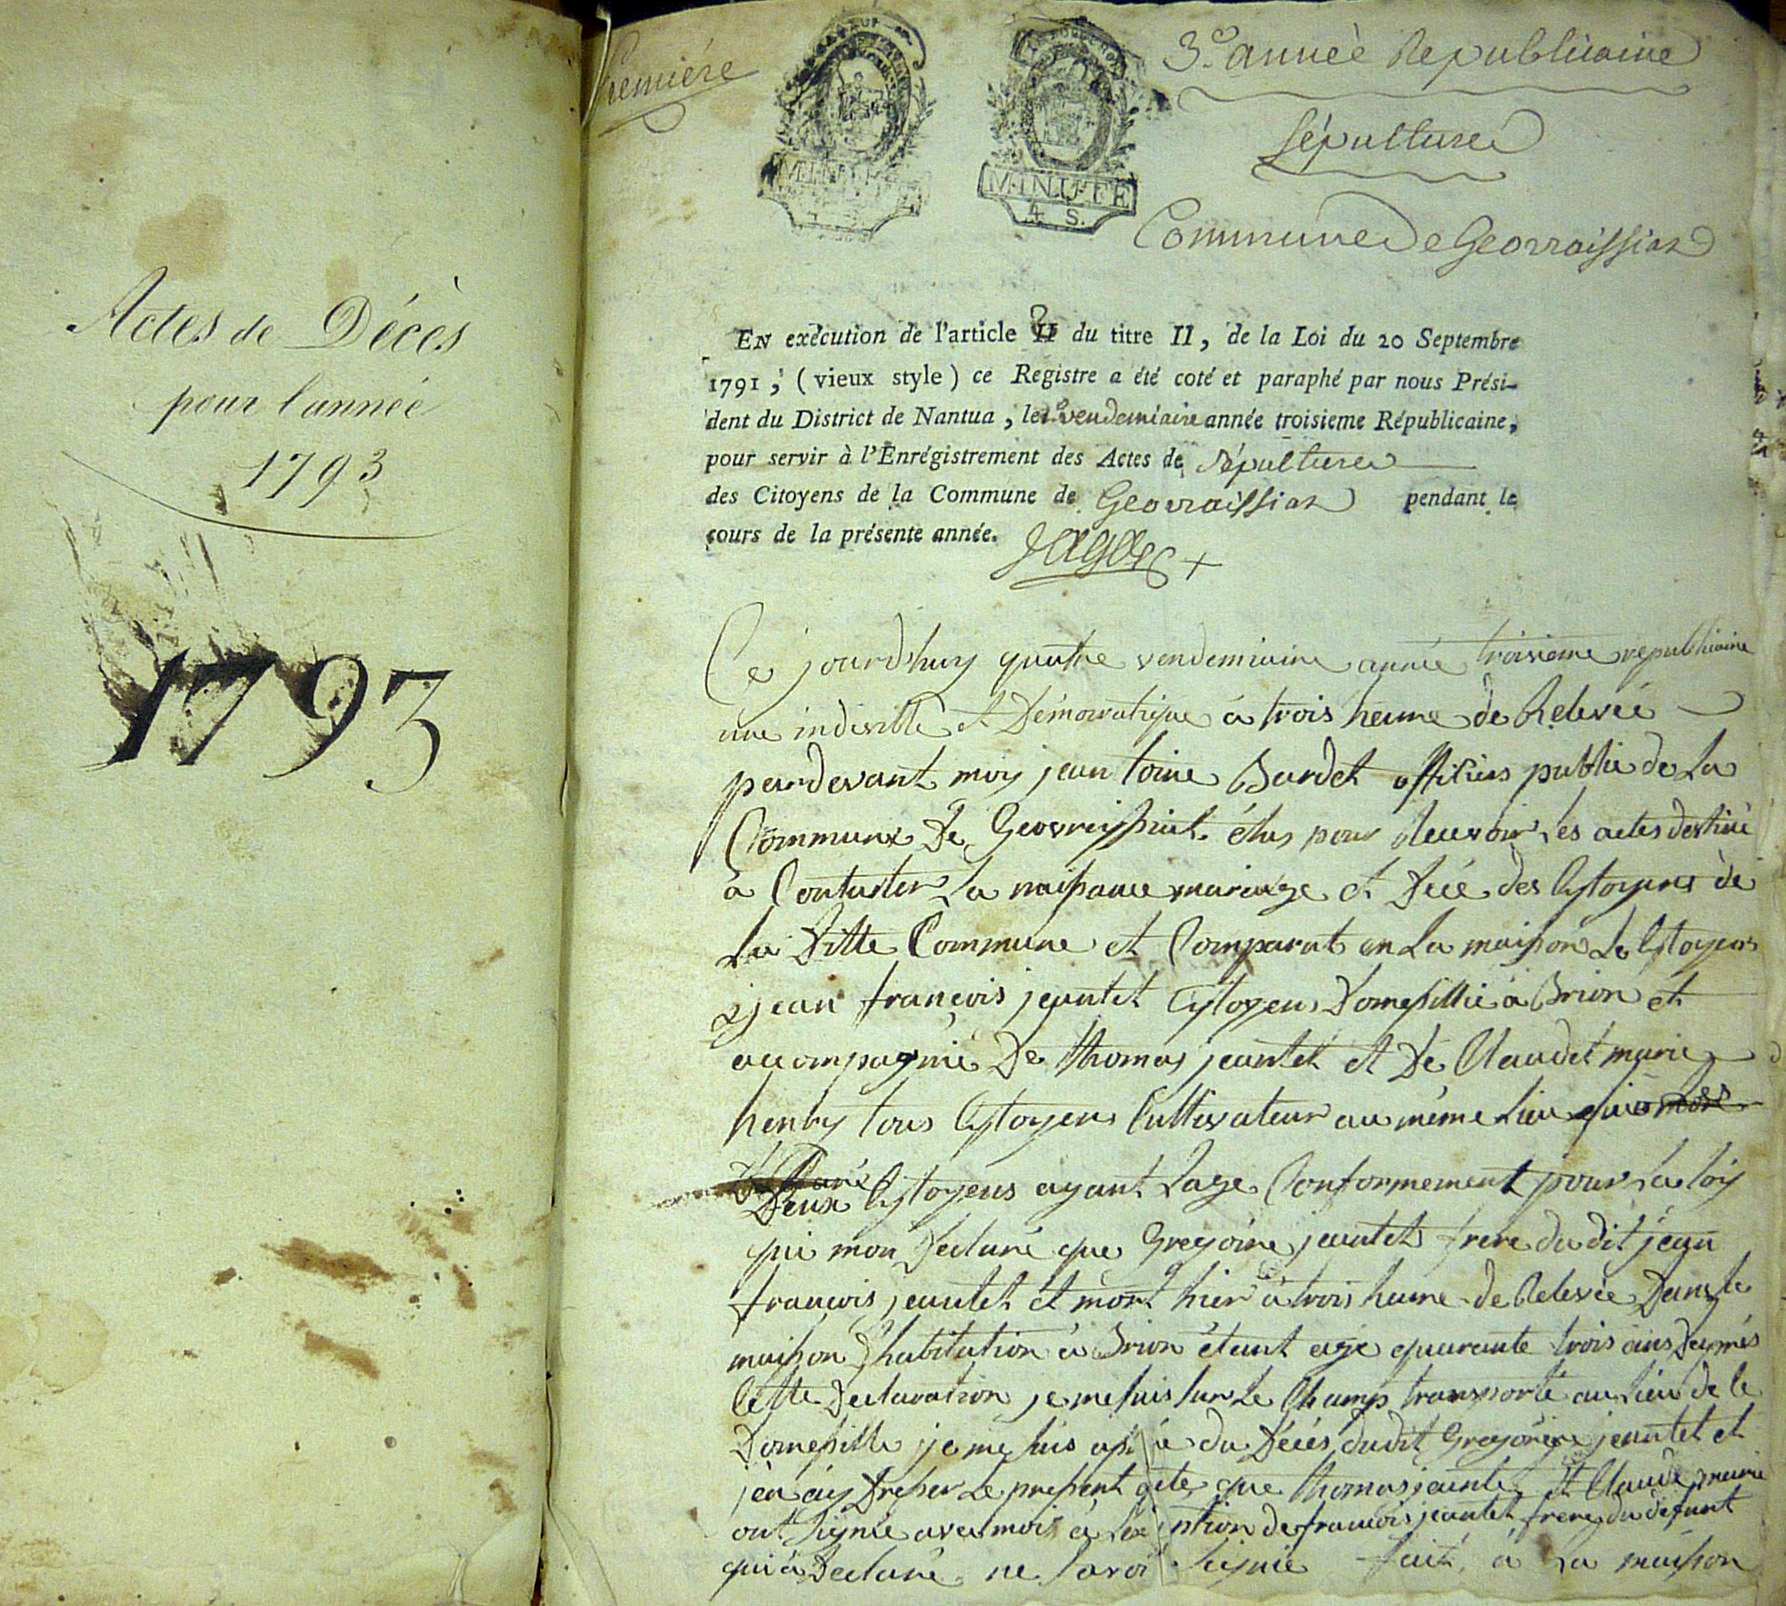 Actes de Décès
pour l'année
1793
1793
Premiére
MINUTE
MINUTE
4 S.
3e année Republicaine
Sépultures
Commune de Geovraissiat
EN exécution de l'article II du titre II, de la Loi du 20 Septembre
1791, (vieux style) ce Registre a été coté et paraphé par nous Prési-
dent du District de Nantua, le 1er vendemiaire année troisieme Républicaine,
pour servir à l'Enrégistrement des Actes de Sépultures
des Citoyens de la Commune de Geovraissiat pendant le
cours de la présente année.
Ce jourdhuy quatre vendemiaire année troisieme republicaine
une indivisible et Démocratique a trois heure de Relevée
pardevant moy jean toine Burdet officier public de La
Commune De Geovreissiat élus pour Recevoir les actes destiné
a Constater La naissance mariage et Décé des Cytoyens de
La Ditte Commune et Comparut en La maison Le Cytoyens
jean francois jeantet Cytoyens Domesillié a Brion et
accompagnié De thomas jeantet et De Claudet marie
henry tous Cytoyens Cultivateur au même Lieu
Deux Cytoyens ayant Lage Conformement pour La loy
qui mon Declaré que Gregoire jeantet frere du dit jean
francois jeantet et mort hier a trois heure de Relevée Dans le
maison D'habitation a Brion étant age quarante trois ans Daprés
Cette Declaration je me suis sur Le Champ transporté au Lieu de le
Domesille je me suis du Décés dudit Gregoire jeantet et
jen ay Dresser Le present acte que thomas jeantet et Claude marie
ont signié avec moi a de francois jeantet frere du defunt
qui a Declaré ne Savoi Signié fait a La maison